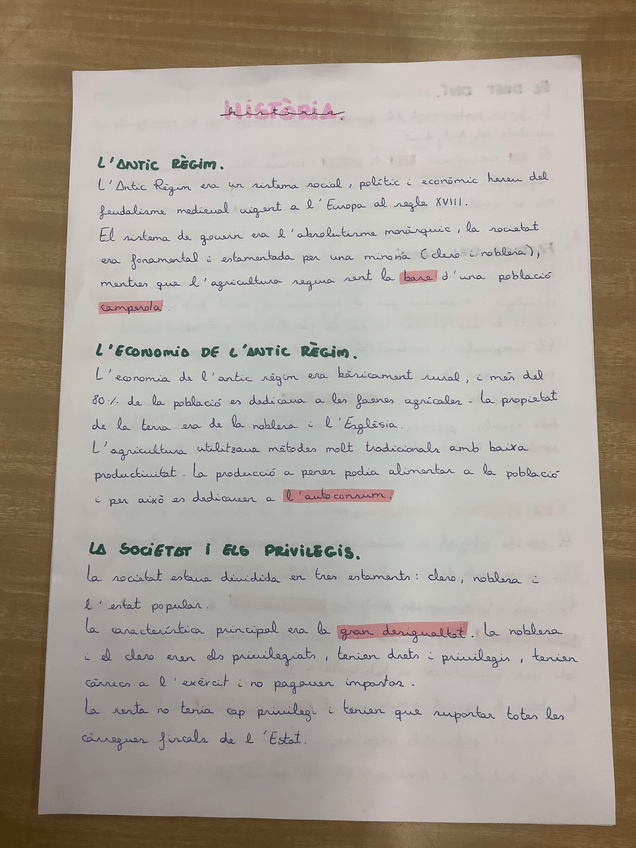 HISTÒRIA.
L'ANTIC RÈGIM.
L'Antic Règim era un sistema social, polític i econòmic hereu del
feudalisme medieval vigent a l'Europa al segle XVIII.
El sistema de govern era l'absolutisme monàrquic, la societat
era fonamental i estamentada per una minoria (clero i noblesa),
mentres que l'agricultura seguia sent la base d'una població
camperola.
L'ECONOMIA DE L'ANTIC RÈGIM.
L'economia de l'antic règim era bàsicament rural, i més del
80% de la població es dedicava a les faenes agrícoles. La propietat
de la terra era de la noblesa i l'Església.
L'agricultura utilitzava mètodes molt tradicionals amb baixa
productivitat. La producció a penes podia alimentar a la població
i per això es dedicaven a l'autoconsum.
LA SOCIETAT I ELS PRIVILEGIS.
La societat estava dividida en tres estaments: clero, noblesa i
l'estat popular.
La característica principal era la gran desigualtat. La noblesa
i el clero eren els privilegiats, tenien drets i privilegis, tenien
càrrecs a l'exèrcit i no pagaven impostos.
La resta no tenia cap privilegi i tenien que suportar totes les
càrregues fiscals de l'Estat.